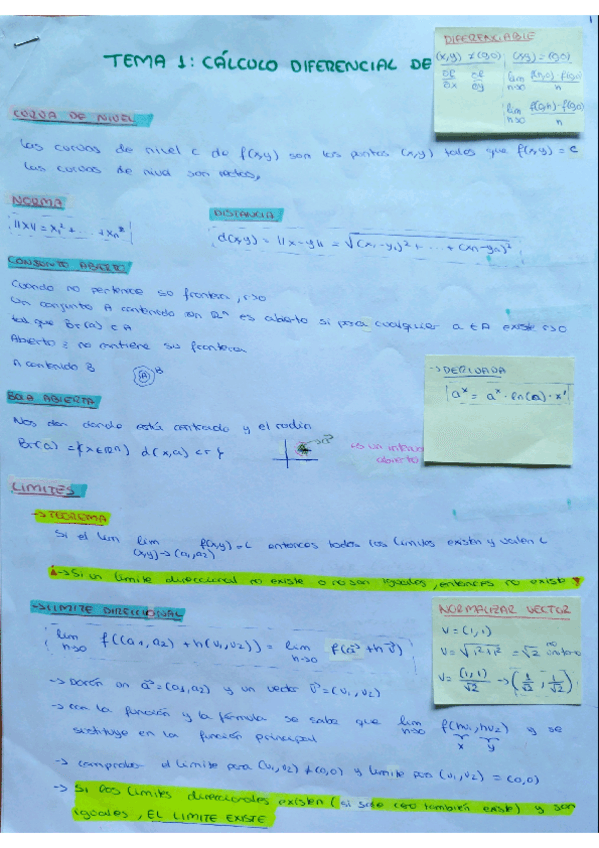 DIFERENCIABLE
(x,y) ≠ (0,0) | (x,y) = (0,0)
∂f/∂x ∂f/∂y
lim h→0 f(h,0) - f(0,0) / h
lim h→0 f(0,h) - f(0,0) / h
TEMA 1: CÁLCULO DIFERENCIAL DE
CURVA DE NIVEL
Las curvas de nivel c de f(x,y) son los puntos (x,y) tales que f(x,y) = c
Las curvas de nivel son rectas,
NORMA
DISTANCIA
||x|| = x₁² + ... + xn²
d(x,y) = ||x-y|| = √(x₁-y₁)² + ... + (xn-yn)²
CONJUNTO ABIERTO
Cuando no pertenece su frontera, r>0
Un conjunto A contenido en ℝⁿ es abierto si para cualquier a ∈ A existe r>0
tal que Br(a) ⊂ A
Abierto: no contiene su frontera
A contenido B
A B
→ DERIVADA
aˣ = aˣ · ln(a) · x'
BOLA ABIERTA
Nos dan donde está centrado y el radio
Br(a) = {x ∈ ℝn} d(x,a) < r }
es un
abierto
LIMITES
→ TEOREMA
Si el lim lim (x,y)→(a₁,a₂) f(x,y) = L entonces todos los limites existen y valen L
→ Si un limite direccional no existe o no son iguales, entonces no existe
→ LIMITE DIRECCIONAL
NORMALIZAR VECTOR
V = (1,1)
V = √1²+1² = √2 no
V = (1,1)/√2 → (1/√2, 1/√2)
lim h→0 f((a₁,a₂) + h(v₁,v₂)) = lim h→0 f(a⃗ + h v⃗)
→ Darán un a⃗ = (a₁,a₂) y un vector v⃗ = (v₁,v₂)
→ con la función y la fórmula se sabe que lim h→0 f(hv₁, hv₂) y se
x y
sustituye en la función principal
→ comprobar el limite para (v₁,v₂) ≠ (0,0) y limite para (v₁,v₂) = (0,0)
→ Si los limites direccionales existen (si sale cero también existe) y son
iguales, EL LIMITE EXISTE